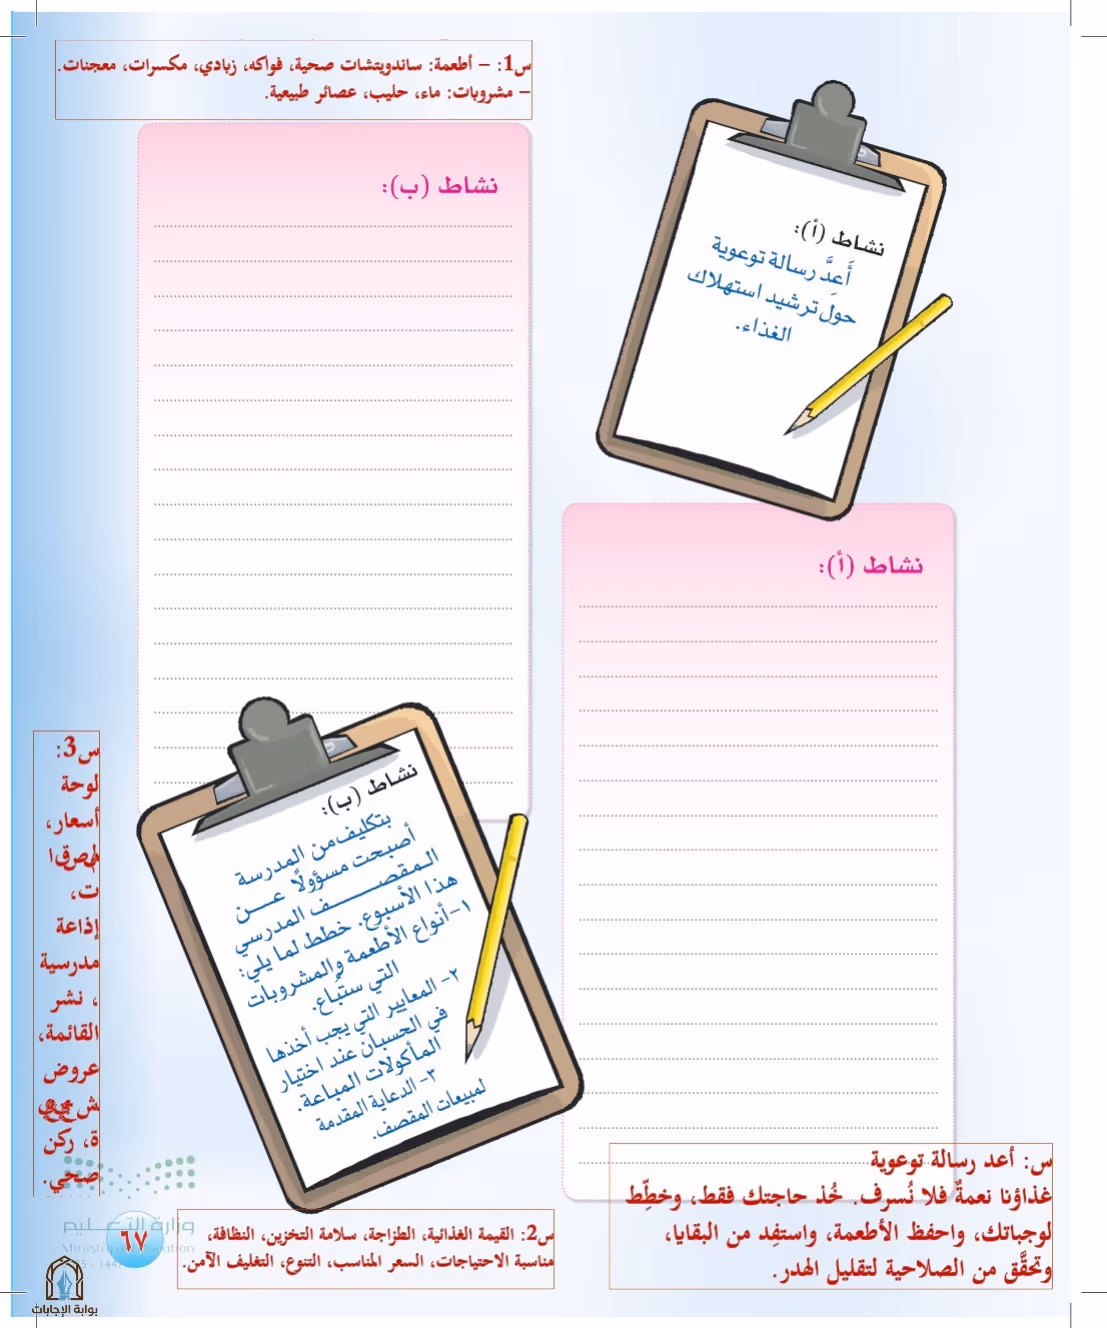 س1: – أطعمة: ساندويتشات صحية، فواكه، زبادي، مكسرات، معجنات.
– مشروبات: ماء، حليب، عصائر طبيعية.
نشاط (أ):
أَعِدَّ رسالة توعوية
حول ترشيد استهلاك
الغذاء.
نشاط (ب):
نشاط (أ):
نشاط (ب):
بتكليف من المدرسة
أصبحت مسؤولًا عـــن
المقصـــــف المدرسي
هذا الأسبوع. خطط لما يلي:
١-أنواع الأطعمة والمشروبات
التي ستُباع.
٢- المعايير التي يجب أخذها
في الحسبان عند اختيار
المأكولات المباعة.
٣- الدعاية المقدمة
لمبيعات المقصف.
س3:
لوحة
أسعار،
ت،
إذاعة
مدرسية
، نشر
القائمة،
عروض
ة، ركن
صحي.
س: أعد رسالة توعوية
غذاؤنا نعمةٌ فلا نُسرف. خُذ حاجتك فقط، وخطِّط
لوجباتك، واحفظ الأطعمة، واستفِد من البقايا،
وتحقَّق من الصلاحية لتقليل الهدر.
س2: القيمة الغذائية، الطزاجة، سلامة التخزين، النظافة،
مناسبة الاحتياجات، السعر المناسب، التنوع، التغليف الآمن.
وزارة التعليم
٦٧
بوابة الإجابات